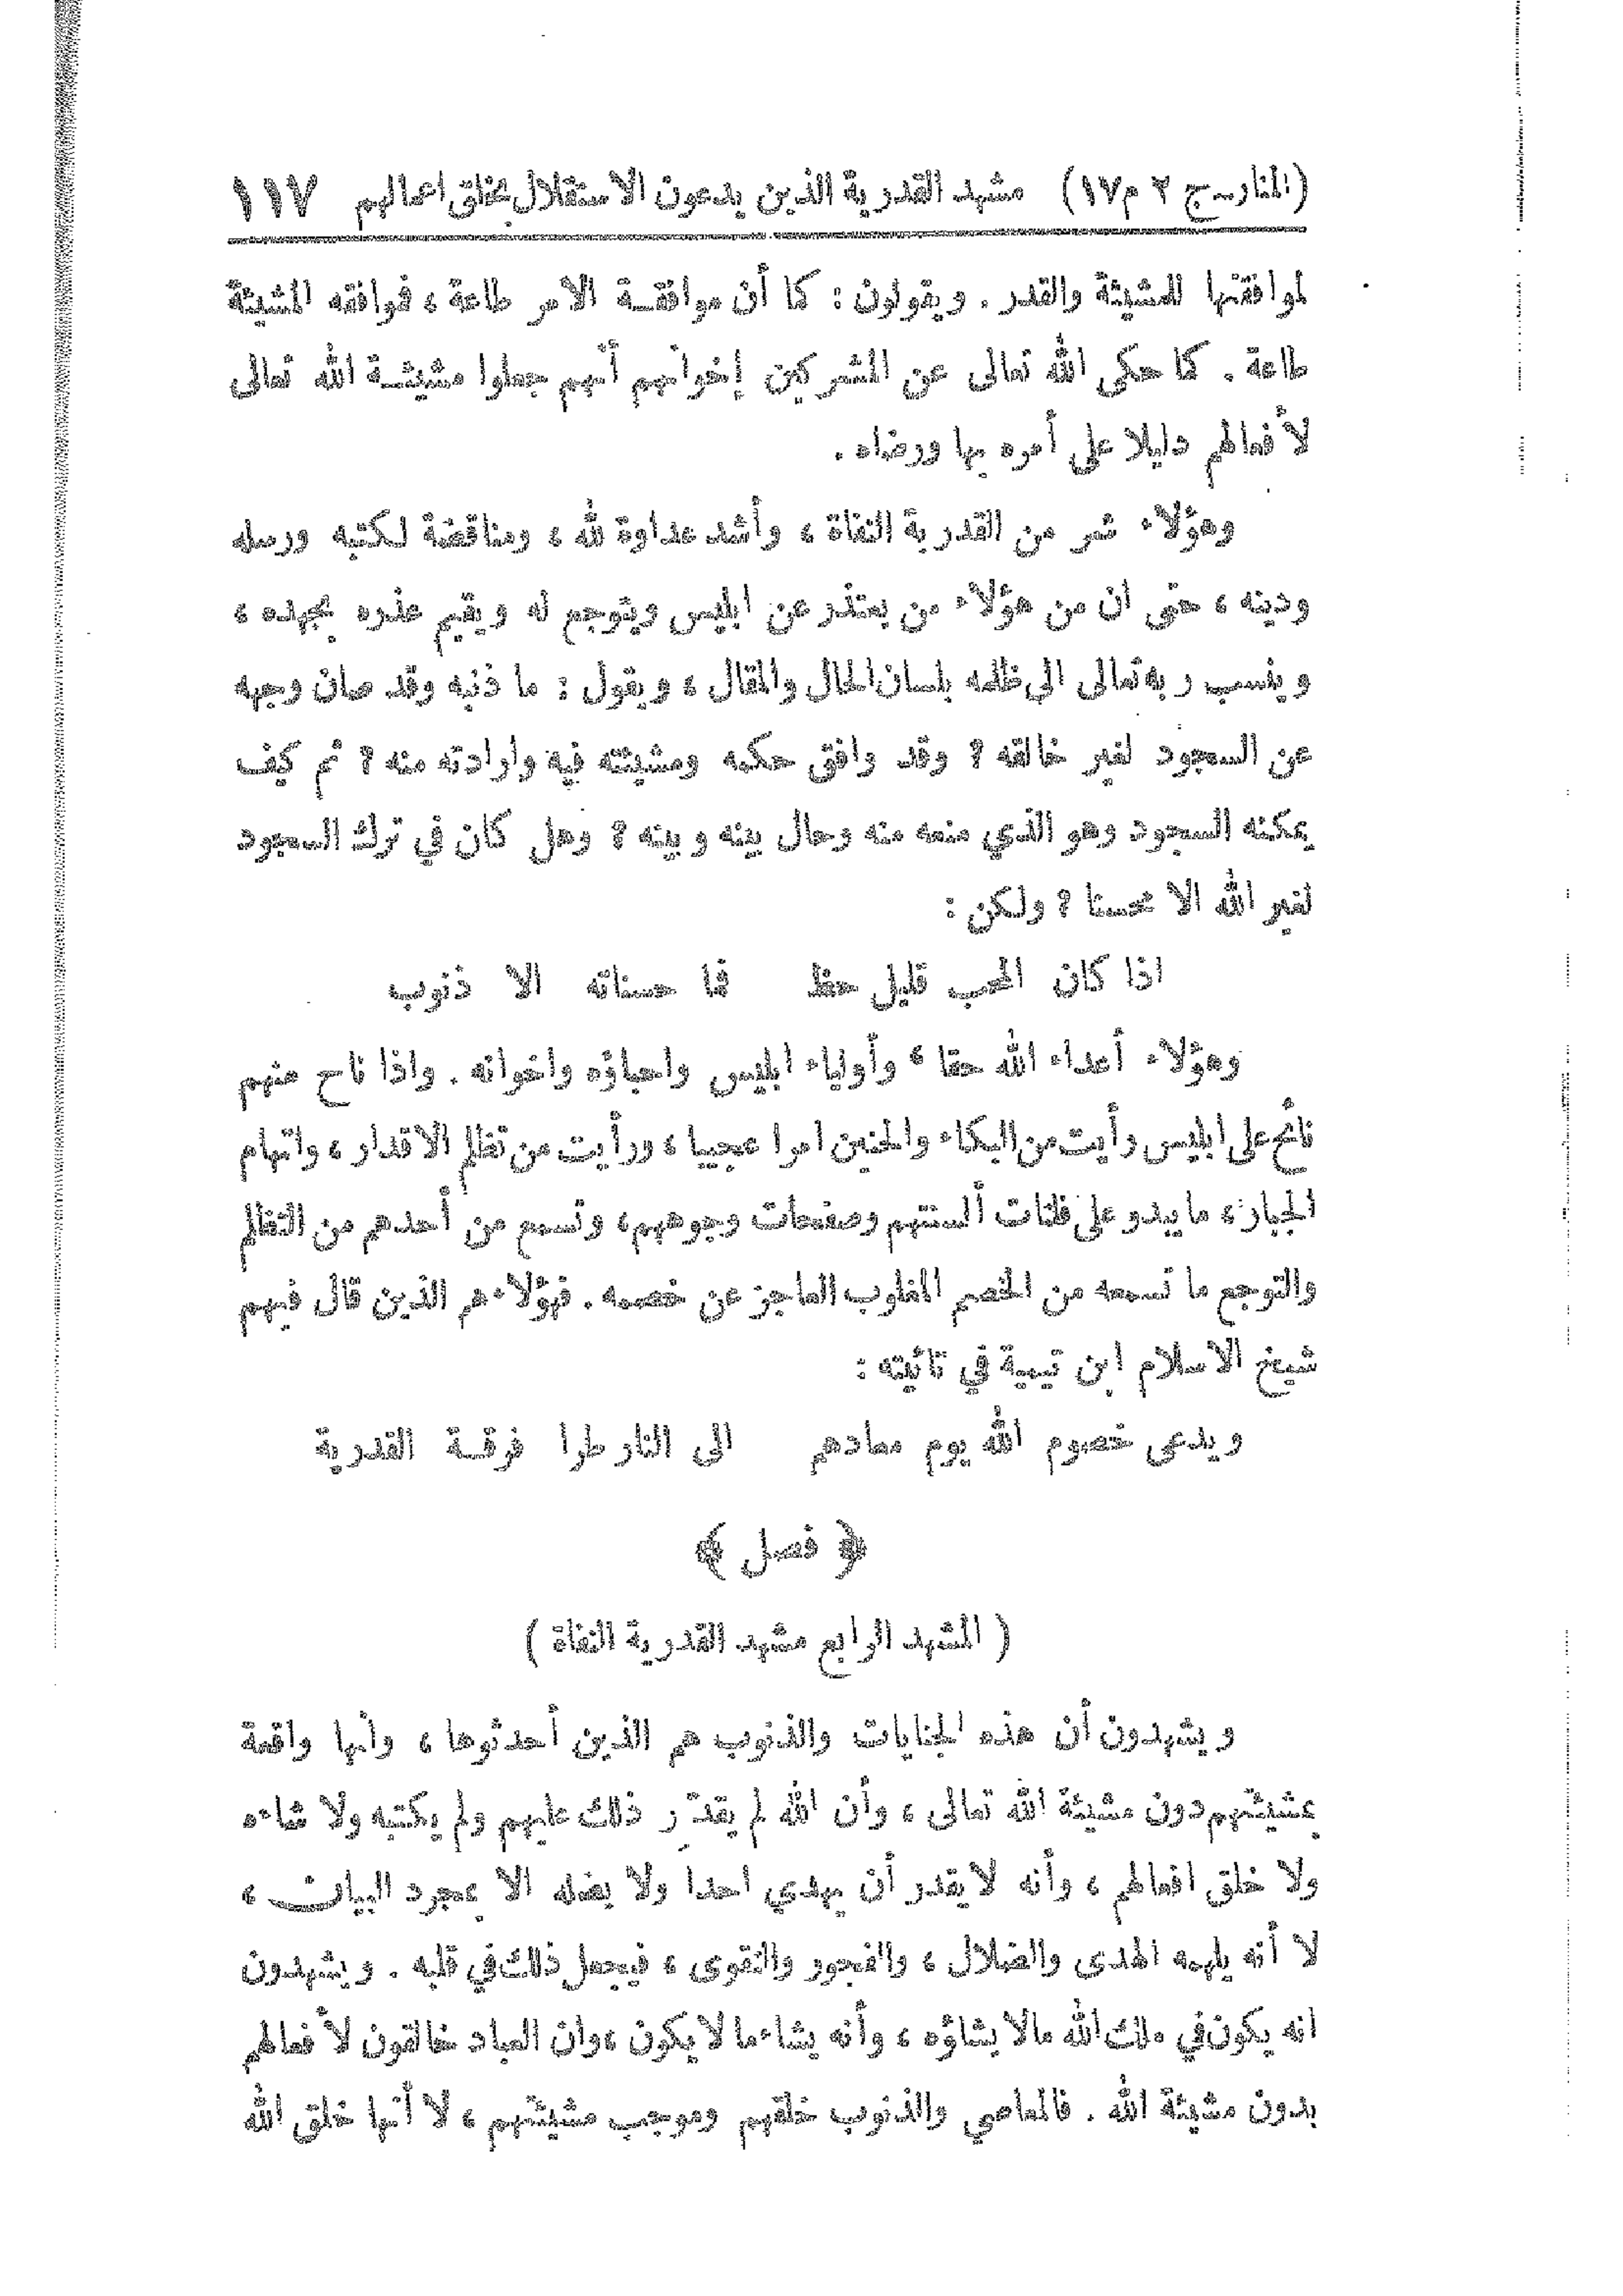 (المنار ـ ج ٢ م ١٧) مشهد القدرية الذين يدعون الاستقلال بخلق اعمالهم ١١٧
لموافقتها للمشيئة والقدر . ويقولون : كما أن موافقة الامر طاعة ، فوافقه المشيئة
طاعة . كما حكى الله تعالى عن المشركين إخوانهم أنهم جعلوا مشيئة الله تعالى
لأفعالهم دليلا على أمره بها ورضاه .
وهؤلاء شر من القدرية النفاة ، وأشد عداوة لله ، ومناقضة لكتبه ورسله
ودينه ، حتى ان من هؤلاء من يعتذر عن ابليس ويتوجع له ويقيم عذره بجهده ،
وينسب ربه تعالى الى ظلمه بلسان الحال والمقال ، ويقول : ما ذنبه وقد صان وجهه
عن السجود لغير خالقه ? وقد وافق حكمه ومشيئته فيه وارادته منه ? ثم كيف
يمكنه السجود وهو الذي منعه منه وحال بينه وبينه ? وهل كان في ترك السجود
لغير الله الا محسنا ? ولكن :
اذا كان المحب قليل حظ فما حسناته الا ذنوب
وهؤلاء أعداء الله حقا ، وأولياء ابليس واحباؤه واخوانه . واذا ناح منهم
نائح على ابليس رأيت من البكاء والحنين امرا عجيبا ، ورأيت من تظلم الاقدار ، واتهام
الجبار ، ما يبدو على فلتات ألسنتهم وصفحات وجوههم ، وتسمع من أحدهم من التظلم
والتوجع ما تسمعه من الخصم المغلوب العاجز عن خصمه . فهؤلاء هم الذين قال فيهم
شيخ الاسلام ابن تيمية في تائيته :
ويدعى خصوم الله يوم معادهم الى النار طرا فرقة القدرية
﴿ فصل ﴾
( المشهد الرابع مشهد القدرية النفاة )
ويشهدون أن هذه الجنايات والذنوب هم الذين أحدثوها ، وأنها واقعة
بمشيئتهم دون مشيئة الله تعالى ، وأن الله لم يقدّر ذلك عليهم ولم يكتبه ولا شاءه
ولا خلق افعالهم ، وأنه لا يقدر أن يهدي احدا ولا يضله الا بمجرد البيان ،
لا أنه يلهمه الهدى والضلال ، والفجور والتقوى ، فيجعل ذلك في قلبه . ويشهدون
انه يكون في ملك الله مالا يشاؤه ، وأنه يشاء ما لا يكون ، وان العباد خالقون لأفعالهم
بدون مشيئة الله . فالمعاصي والذنوب خلقهم وموجب مشيئتهم ، لا أنها خلق الله